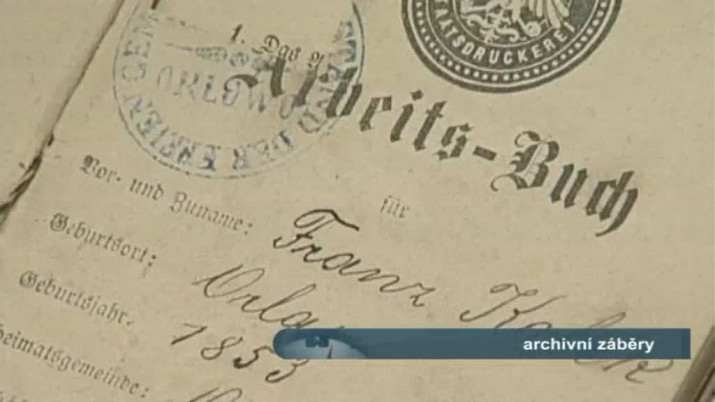 STAATSDRUCKEREI
ORLOW
DER FREIEN GEM
Arbeits-Buch
für
Vor- und Zuname: Franz
Geburtsort:
Geburtsjahr. 1853
Heimatsgemeinde:
archivní záběry